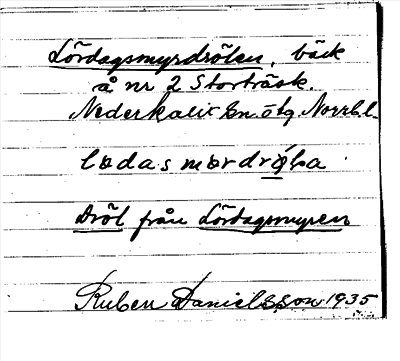 Lördagsmyrdrölen, bäck
å nr 2 Storträsk.
Nederkalix sn. ötg. Norrb.l.
lɵdasmɵrdrǿla
Dröl från Lördagsmyren
Ruben Danielsson 1935